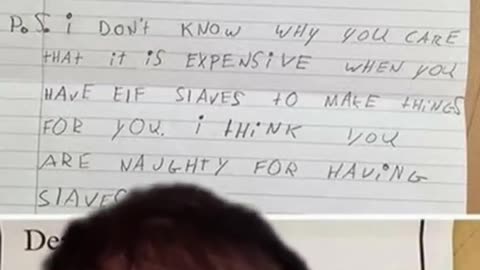 P.S. i DON't KNOW WHY YOU CARE
tHAt it iS EXPENSiVE WHEN YOU
HAVE ElF SlAVES tO MAKE tHiNGS
FOR YOU. i tHiNK YOU
ARE NAUGHTY FOR HAViNG
SlAVES